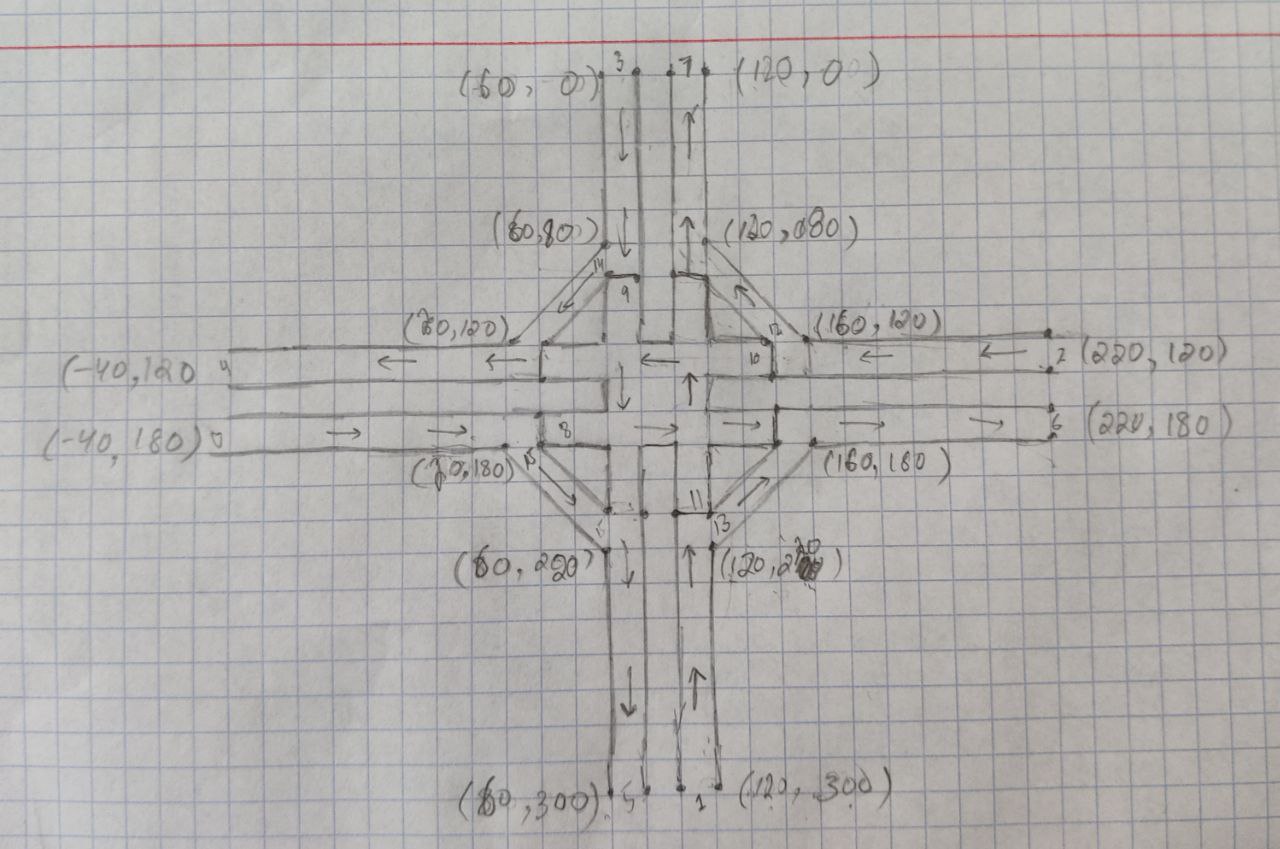 (60, 0) 3 7 (120, 0)
(60,80) (120, 080)
14
9
(60,120) 12 (160, 120)
(-40,120 4 10 2 (220, 120)
(-40, 180) 0 8 6 (220, 180)
15 (160, 180)
11
13
(60, 220) (120,220)
(60,300) 5 1 (120, 300)